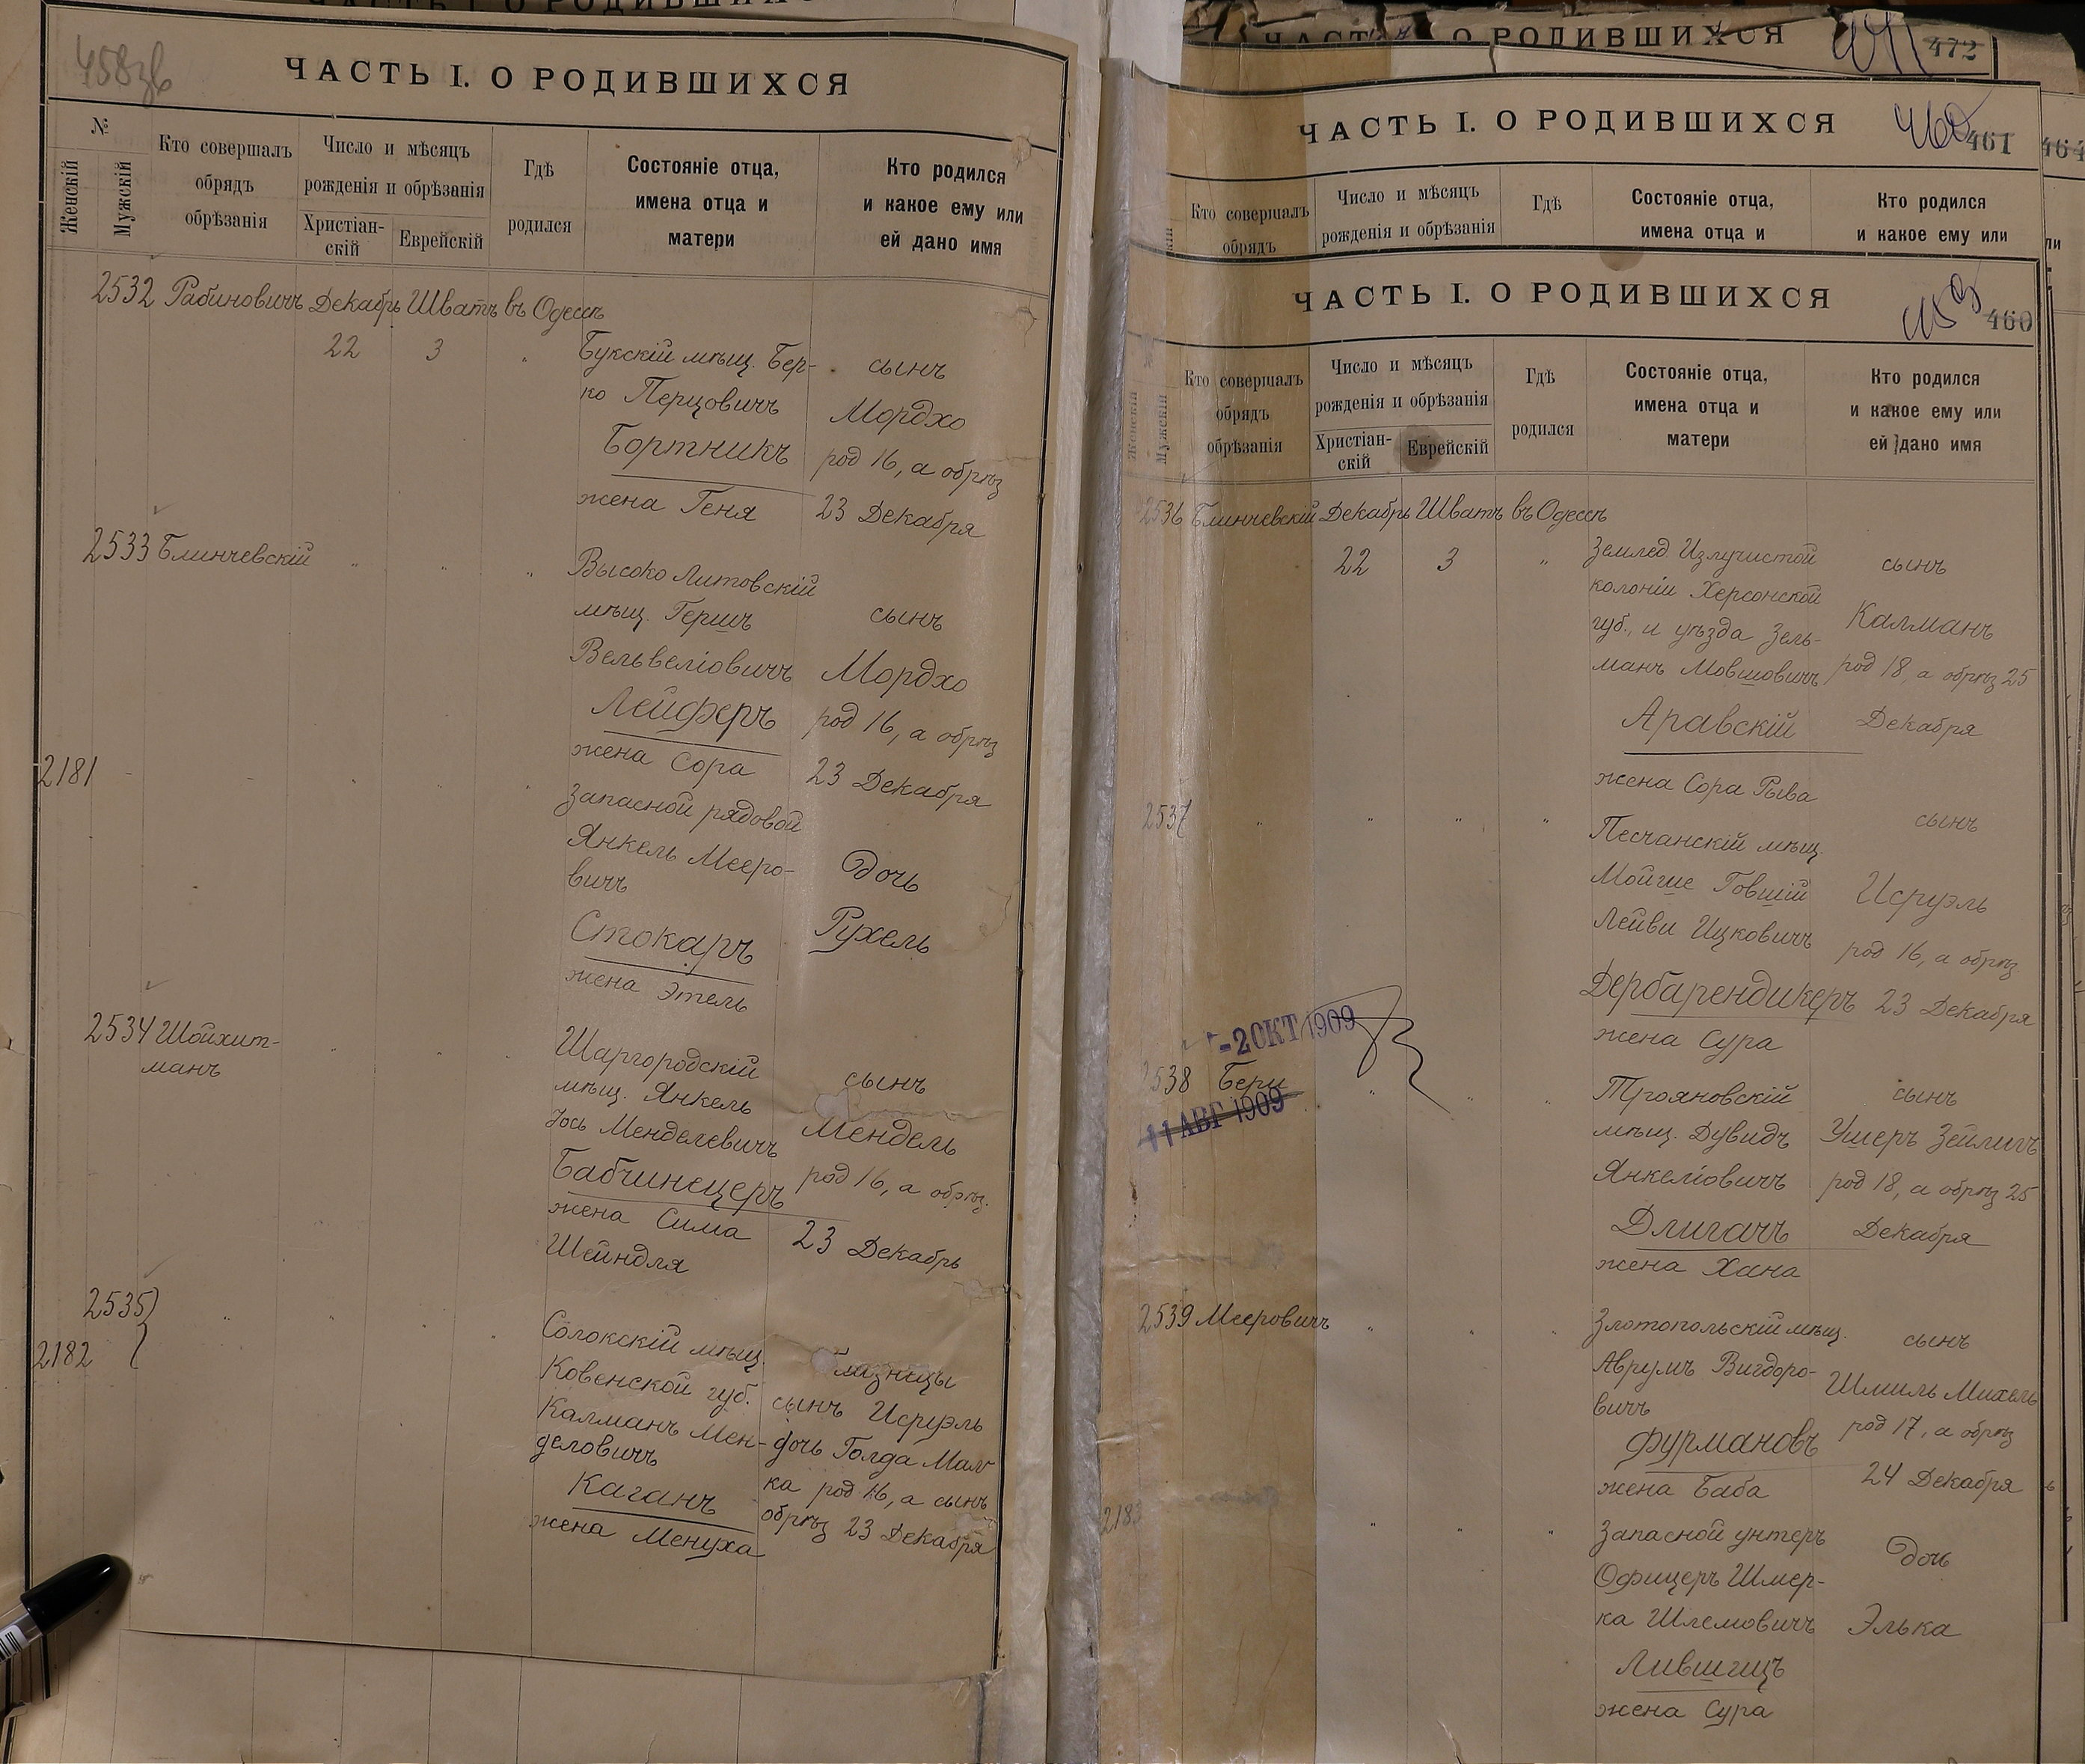 458зв
ЧАСТЬ I. О РОДИВШИХСЯ
№
Женскій
Мужскій
Кто совершалъ
обрядъ
обрѣзанія
Число и мѣсяцъ
рожденія и обрѣзанія
Христіан-
скій
Еврейскій
Гдѣ
родился
Состояніе отца,
имена отца и
матери
Кто родился
и какое ему или
ей дано имя
2532 Рабиновичъ Декабрь Шватъ въ Одессѣ
22 3 "
Букскій мѣщ. Бер-
ко Перцовичъ
Бортникъ
жена Геня
сынъ
Мордхо
род 16, а обрѣз
23 Декабря
2533 Блинчевскій " " "
Высоко Литовскій
мѣщ. Гершъ
Вельвеліовичъ
Лейферъ
жена Сора
сынъ
Мордхо
род 16, а обрѣз
23 Декабря
2181
Запасной рядовой
Янкель Мееро-
вичъ
Стокаръ
жена Этель
Дочь
Рухель
2534 Шойхит-
манъ
Шаргородскій
мѣщ. Янкель
Іось Менделевичъ
Бабчинецеръ
жена Сима
Шейндля
сынъ
Мендель
род 16, а обрѣз.
23 Декабрь
2535
2182
Солокскій мѣщ.
Ковенской губ.
Калманъ Мен-
деловичъ
Каганъ
жена Менуха
Близнецы
сынъ Исруэль
дочь Голда Мал
ка род 16, а сынъ
обрѣз 23 Декабря
ЧАСТЬ I. О РОДИВШИХСЯ
472
ЧАСТЬ I. О РОДИВШИХСЯ
460
461
464
Кто совершалъ
обрядъ
Число и мѣсяцъ
рожденія и обрѣзанія
Гдѣ
родился
Состояніе отца,
имена отца и
Кто родился
и какое ему или
ЧАСТЬ I. О РОДИВШИХСЯ
459
460
Женскій
Мужскій
Кто совершалъ
обрядъ
обрѣзанія
Число и мѣсяцъ
рожденія и обрѣзанія
Христіан-
скій
Еврейскій
Гдѣ
родился
Состояніе отца,
имена отца и
матери
Кто родился
и какое ему или
ей дано имя
2536 Блинчевскій Декабрь Шватъ въ Одессѣ
22 3 "
Землед Излучистой
колоніи Херсонской
губ., и уѣзда Зель-
манъ Мовшовичъ
Аравскій
жена Сора Рыва
сынъ
Калманъ
род 18, а обрѣз 25
Декабря
2537 " " " "
Песчанскій мѣщ.
Мойше Говшій
Лейви Ицковичъ
Дербарендикеръ
жена Сура
сынъ
Исруэль
род 16, а обрѣз
23 Декабря
-2 ОКТ 1909
2538 Бери
11 АВГ 1909
Трояновскій
мѣщ. Дувидъ
Янкеліовичъ
Длигачъ
жена Хана
сынъ
Ушеръ Зейлигъ
род 18, а обрѣз 25
Декабря
2539 Мееровичъ " " "
Златопольскій мѣщ.
Аврумъ Вигдоро-
вичъ
Фурмановъ
жена Баба
сынъ
Шмиль Михель
род 17, а обрѣз
24 Декабря
2183 " " "
Запасной унтеръ
Офицеръ Шмер-
ка Шлемовичъ
Лившицъ
жена Сура
Дочь
Элька